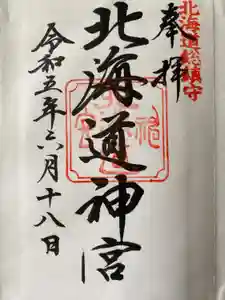 北海道総鎮守
奉拝
北海道神宮
令和五年六月十八日